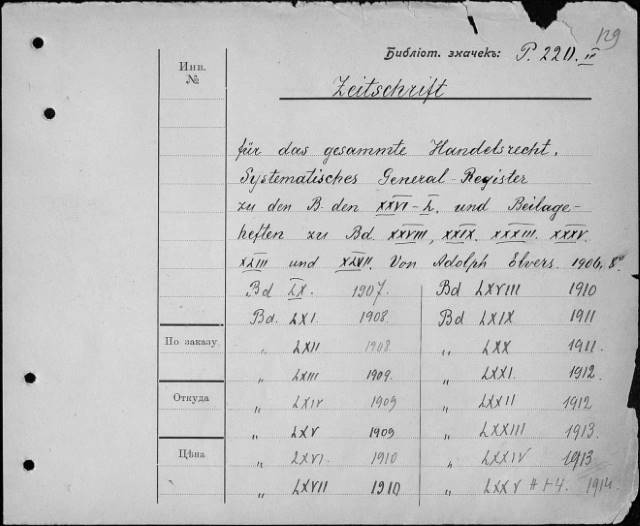 129
Библіот. значекъ: P. 220. II
Инв.
№
Zeitschrift
für das gesammte Handelsrecht.
Systematisches General-Register
zu den B-den XXVI-L. und Beilage-
heften zu Bd. XXVIII, XXIX. XXXIII. XXXV.
XLIII und XLVII. Von Adolph Elvers. 1904, 8°
Bd LX. 1907. Bd LXVIII 1910
Bd. LXI. 1908. Bd LXIX 1911
По заказу. „ LXII 1908. „ LXX 1911.
„ LXIII 1909. „ LXXI. 1912.
Откуда „ LXIV 1909 „ LXXII 1912
„ LXV 1909 „ LXXIII 1913.
Цѣна „ LXVI. 1910 „ LXXIV 1913
„ LXVII 1910 „ LXXV # 1-4. 1914.